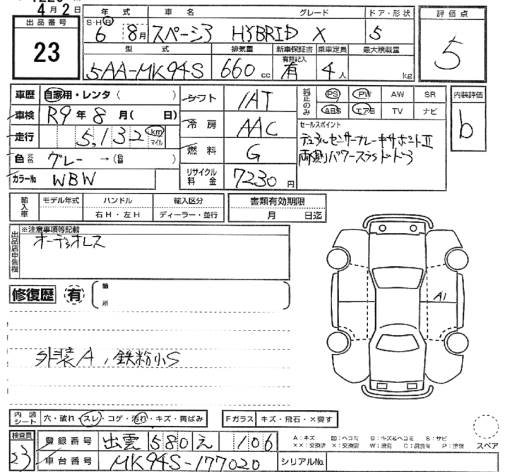 4月2日
出品番号
23
年式 車名 グレード ドア・形状
S・H・R 6年 8月 スペーシア HYBRID X 5
型式 排気量 新車保証書 乗車定員 最大積載量
有無記入
5AA-MK94S 660cc 有 4人 kg
評価点
5
車歴 自家用・レンタ( )
車検 R9年8月( 日)
走行 5,132 km マイル
色 グレー→( )
カラーNo WBW
シフト IAT
冷房 AAC
燃料 G
リサイクル料金 7230円
PS PW AW SR
ABS エアB TV ナビ
セールスポイント
デュアルセンサーブレーキサポートⅡ
両側パワースライドドア
内装評価
b
輸入車 モデル年式 ハンドル 輸入区分
右H・左H ディーラー・並行
書類有効期限
月 日迄
出品店申告欄
※注意事項等記載
オーディオレス
修復歴 有
箇所
A1
外装A,鉄粉小S
内装シート 穴・破れ・スレ・コゲ・汚れ・キズ・両ばみ
Fガラス キズ・飛石・X要す
検査員
23
登録番号 出雲 580 え 106
車台番号 MK94S-177020 シリアルNo.
スペア